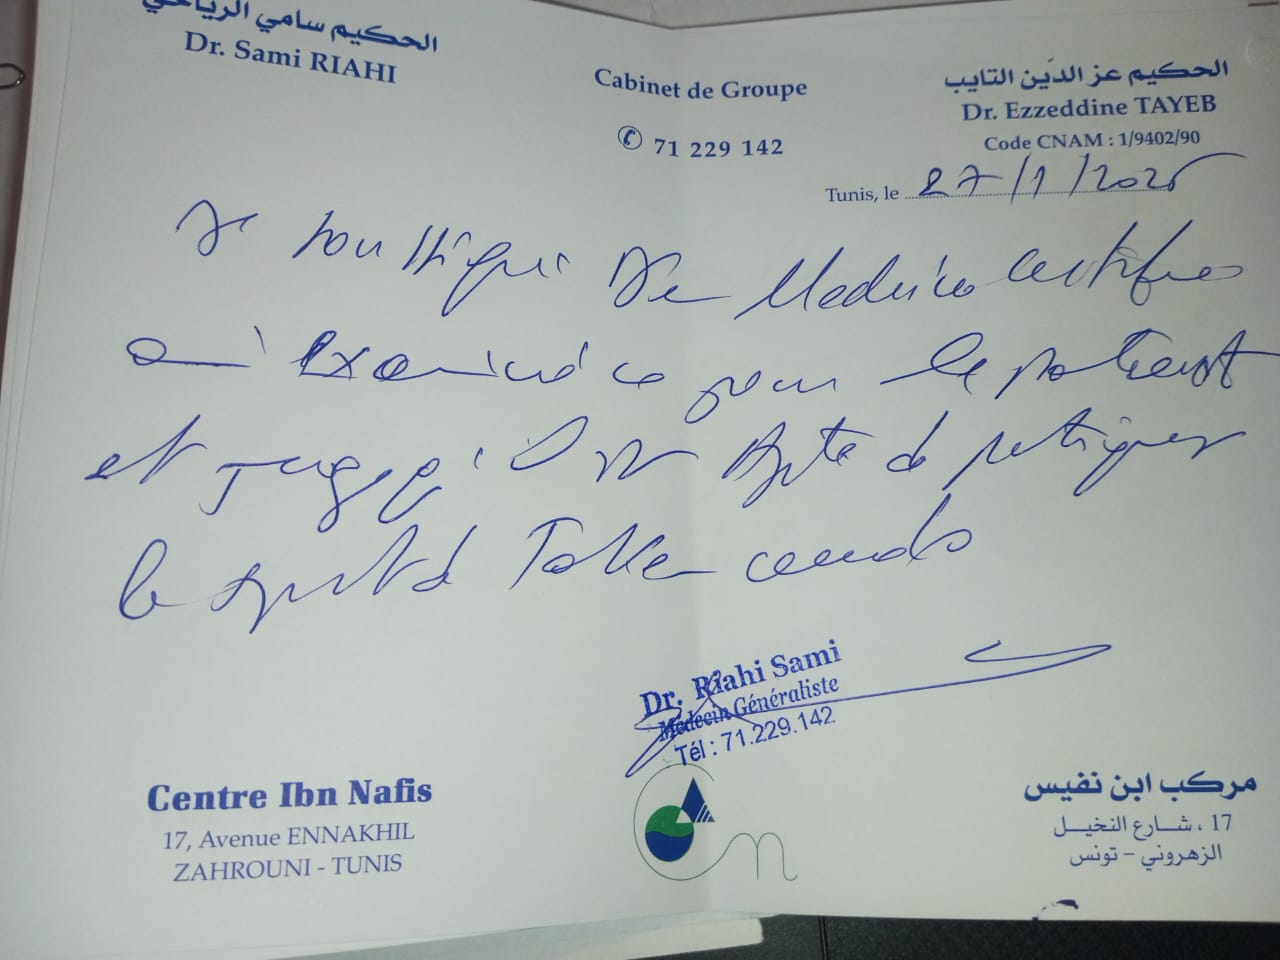 الحكيم سامي الرياحي
Dr. Sami RIAHI
Cabinet de Groupe
✆ 71 229 142
الحكيم عز الدّين التايب
Dr. Ezzeddine TAYEB
Code CNAM : 1/9402/90
Tunis, le 27/1/2025
Je soussigné Dr Médecin certifie
avoir examiné ce jour le patient
et jugé apte de pratiquer
le sport de
Dr. Riahi Sami
Médecin Généraliste
Tél : 71.229.142
Centre Ibn Nafis
17, Avenue ENNAKHIL
ZAHROUNI - TUNIS
مركب ابن نفيس
17 ، شارع النخيل
الزهروني – تونس